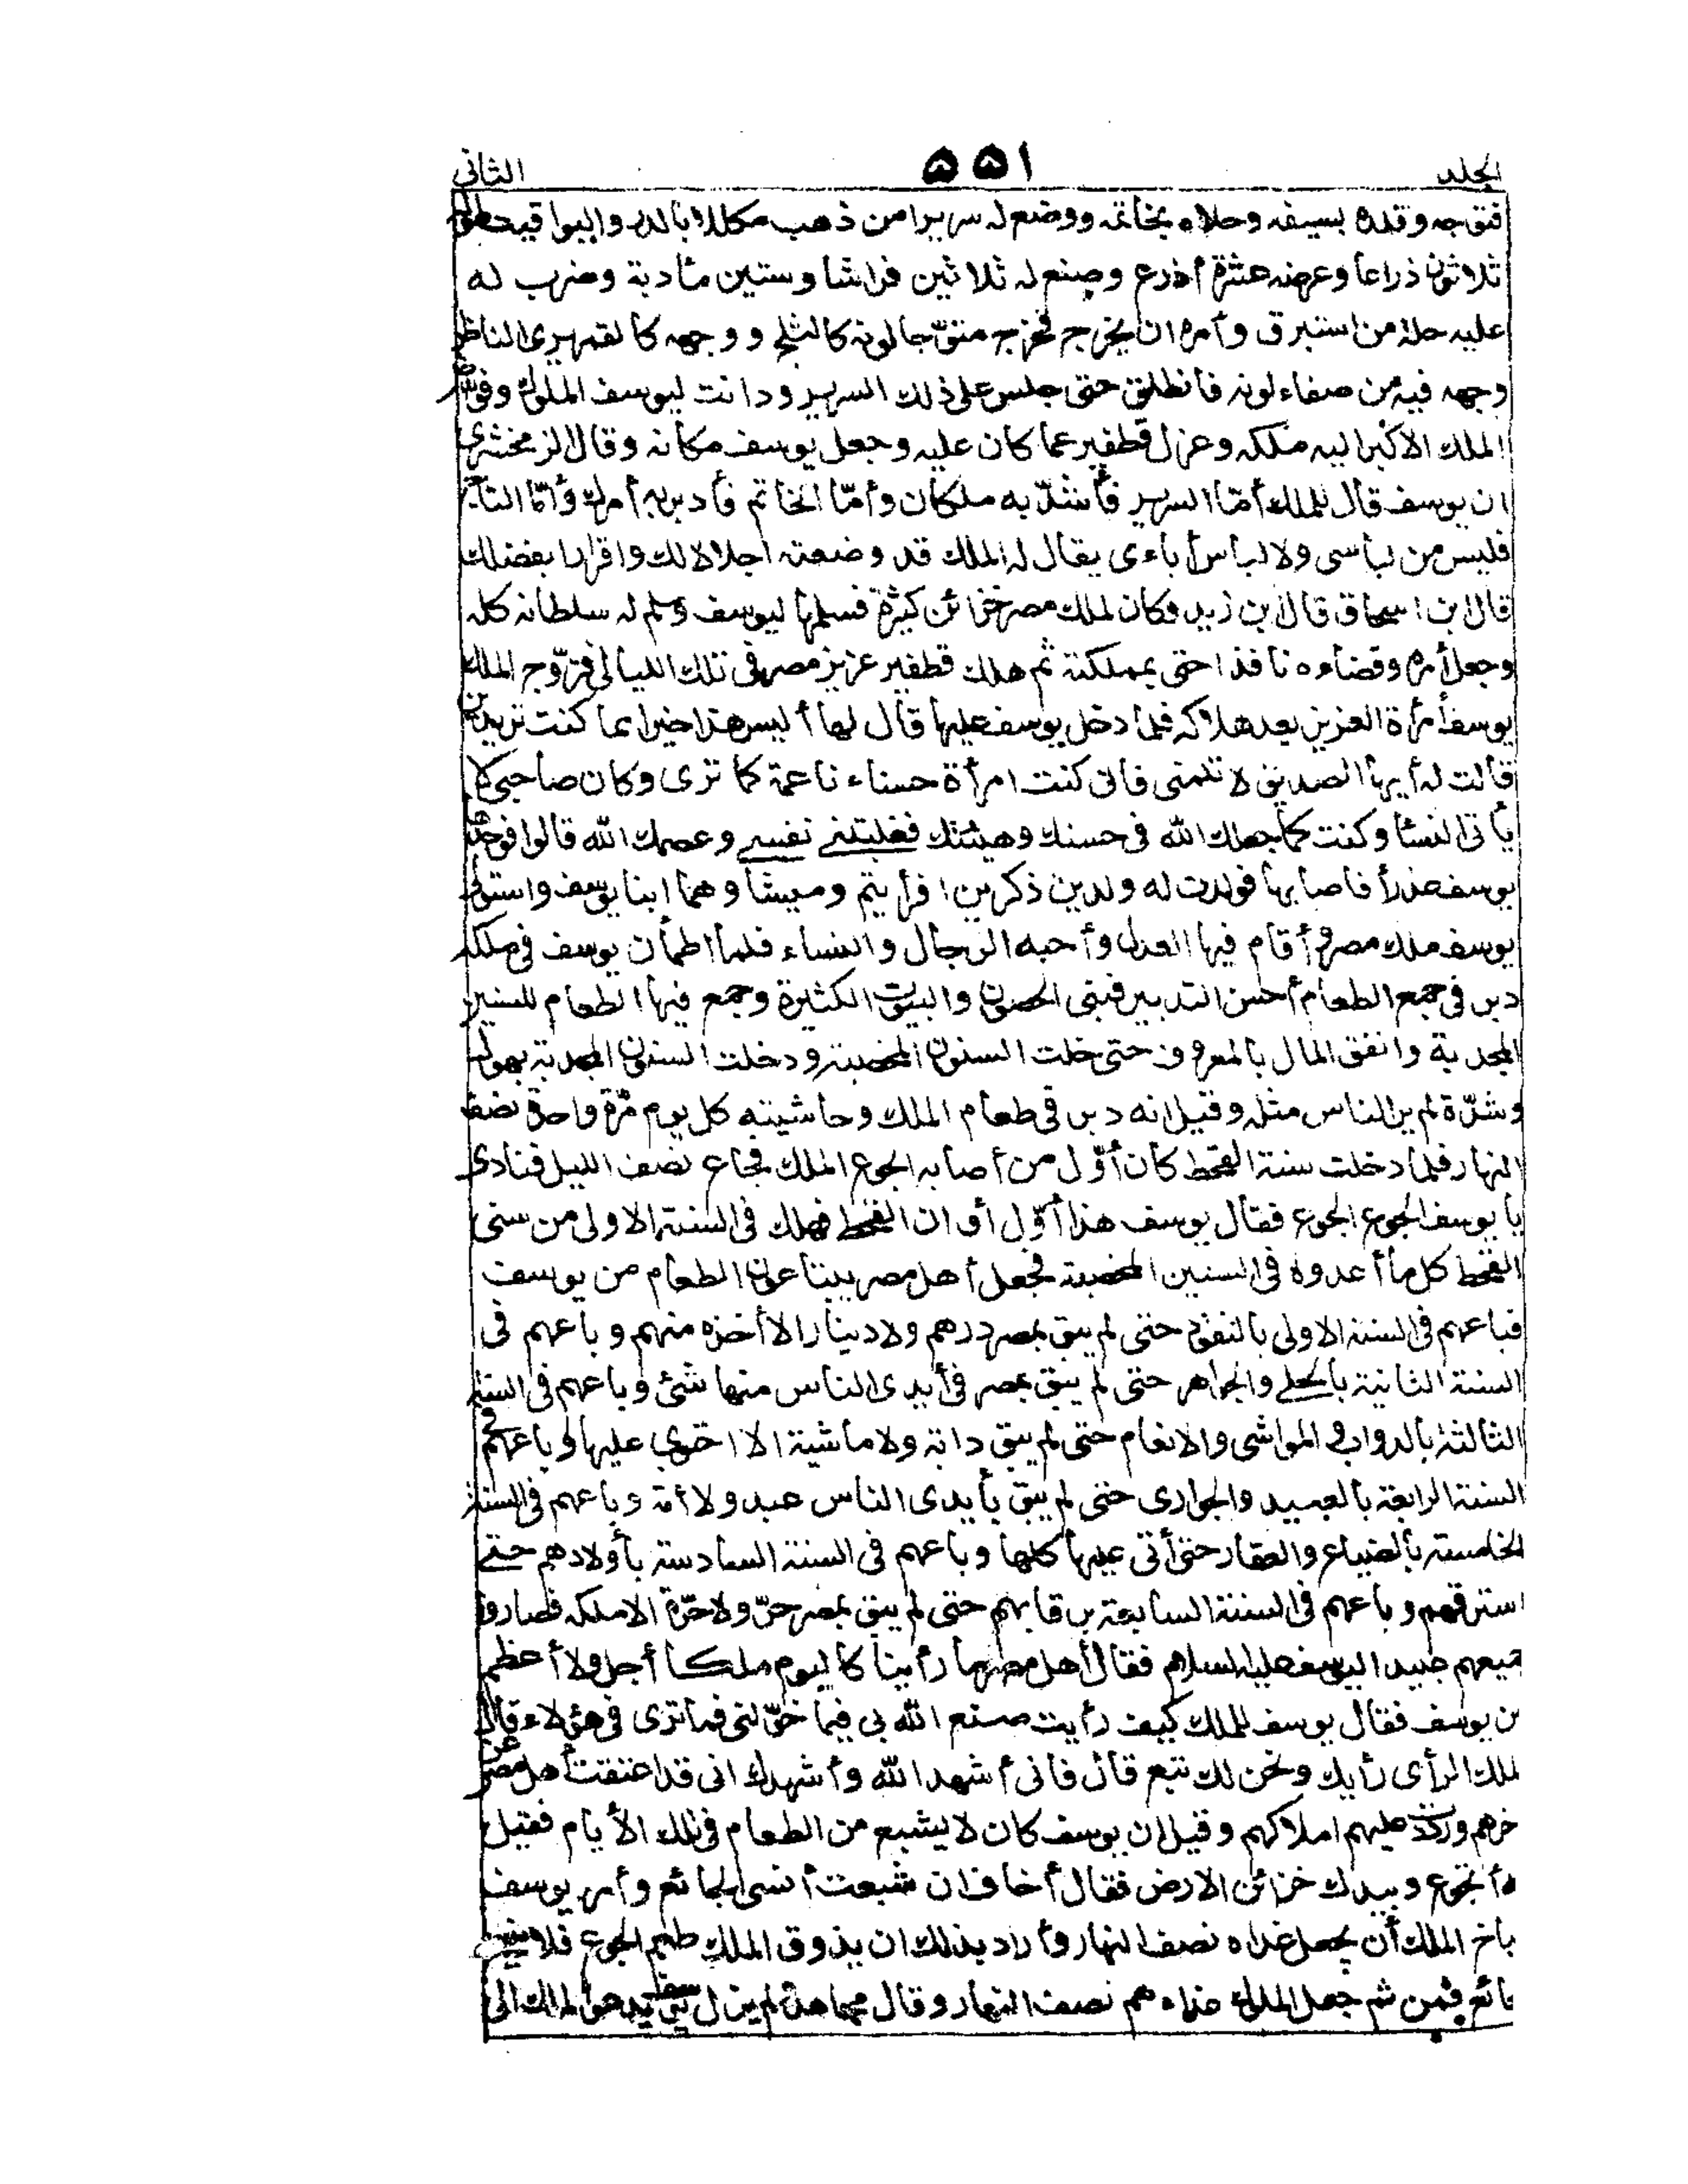 الجلد ۵۵۱ الثانى
فتوجه وقلده بسيفه وحلاه بخاتمه ووضع له سريرا من ذهب مكللا بالدر واليواقيت طوله
ثلاثون ذراعا وعرضه عشرة أذرع وصنع له ثلاثين فراشا وستين مأدبة وضرب له
عليه حلة من استبرق وأمره ان يخرج فخرج متوّجا لونه كالثلج ووجهه كالقمر يرى الناظر
وجهه فيه من صفاء لونه فانطلق حتى جلس على ذلك السرير ودانت ليوسف الملوك وفوّض
الملك الاكبر اليه ملكه وعزل قطفير عما كان عليه وجعل يوسف مكانه وقال الزمخشرى
ان يوسف قال للملك أمّا السرير فأشدّ به ملكك وأمّا الخاتم فأدبر به أمرك وأمّا التاج
فليس من لباسى ولا لباس أباءى يقال له الملك قد وضعته اجلالا لك واقرارا بفضلك
قال ابن اسحاق قال ابن زيد وكان لملك مصر خزائن كثيرة فسلمها ليوسف وسلم له سلطانه كله
وجعل أمره وقضاءه نافذا حتى بمملكته ثم هلك قطفير عزيز مصر فى تلك الليالى فزوّج الملك
يوسف أمرأة العزيز بعد هلاكه فلما دخل يوسف عليها قال لها أليس هذا خيرا مما كنت تريدين
قالت له أيها الصديق لا تلمنى فانى كنت امرأة حسناء ناعمة كما ترى وكان صاحبى لا
يأتى النسأ وكنت كما جعلك الله فى حسنك وهيئتك فغلبتنى نفسى وعصمك الله قالوا فوجدها
يوسف عذرأ فاصابها فولدت له ولدين ذكرين افرأيتم وميشا وهما ابنا يوسف واستولى
يوسف ملك مصر وأقام فيها العدل وأحبه الرجال والنساء فلما اطمأن يوسف فى ملكه
دبر فى جمع الطعام أحسن التدبير فبنى الحصون والبيوت الكثيرة وجمع فيها الطعام للسنين
المجدبة وانفق المال بالمعروف حتى خلت السنون المخصبة ودخلت السنون المجدبة بهول
وشدّة لم ير الناس مثله وقيل انه دبر فى طعام الملك وحاشيته كل يوم مرّة واحدة نصف
النهار فلما دخلت سنة القحط كان أوّل من أصابه الجوع الملك فجاع نصف الليل فنادى
يا يوسف الجوع الجوع فقال يوسف هذا أوّل أوان القحط فهلك فى السنة الاولى من سنى
القحط كل ما أعدوه فى السنين المخصبة فجعل أهل مصر يبتاعون الطعام من يوسف
فباعهم فى السنة الاولى بالنقود حتى لم يبق بمصر درهم ولا دينار الا أخذه منهم وباعهم فى
السنة الثانية بالحلى والجواهر حتى لم يبق بمصر فى أيدى الناس منها شئ وباعهم فى السنة
الثالثة بالدواب والمواشى والانعام حتى لم يبق دابة ولا ماشية الا احتوى عليها وباعهم فى
السنة الرابعة بالعبيد والجوارى حتى لم يبق بأيدى الناس عبد ولا أمة وباعهم فى السنة
الخامسة بالضياع والعقار حتى أتى عليها كلها وباعهم فى السنة السادسة بأولادهم حتى
استرقهم وباعهم فى السنة السابعة برقابهم حتى لم يبق بمصر حرّ ولا حرّة الا ملكه فصاروا
جميعهم عبيدا ليوسف عليه السلام فقال أهل مصر ما رأينا كاليوم ملكا أجل ولا أعظم
من يوسف فقال يوسف للملك كيف رأيت صنع الله بى فيما خوّلنى فما ترى فى هؤلاء قال
الملك الرأى رأيك ونحن لك تبع قال فانى أشهد الله وأشهدك انى قد اعتقت أهل مصر عن
آخرهم ورددت عليهم املاكهم وقيل ان يوسف كان لا يشبع من الطعام فى تلك الأيام فقيل
له أتجوع وبيدك خزائن الارض فقال أخاف ان شبعت أنسى الجائع وأمر يوسف
طباخ الملك أن يجعل غداه نصف النهار وأراد بذلك ان يذوق الملك طعم الجوع فلا ينسى
جائع فمن ثم جعل الملوك غذاءهم نصف النهار وقال مجاهد لم يزل يوسف يدعوا الملك الى